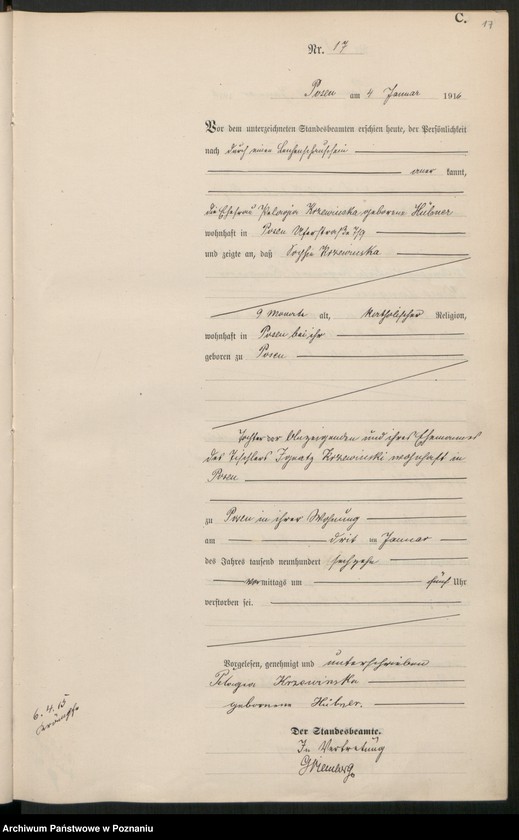 C.
17
Nr. 17
Posen am 4 Januar 1916
Vor dem unterzeichneten Standesbeamten erschien heute, der Persönlichkeit
nach durch einen Leichenschauschein
aner kannt,
die Ehefrau Pelagia Krzewinska geborene Hübner
wohnhaft in Posen Uferstraße 7/9
und zeigte an, daß Sophie Krzewinska
9 Monate alt, katholischer Religion,
wohnhaft in Posen bei ihr
geboren zu Posen
Tochter der Anzeigenden und ihres Ehemannes
des Tischlers Ignatz Krzewinski wohnhaft in
Posen
zu Posen in ihrer Wohnung
am drit en Januar
des Jahres tausend neunhundert sechzehn
mittags um fünf Uhr
verstorben sei.
Vorgelesen, genehmigt und unterschrieben
Pelagia Krzewinska
geborene Hübner.
Der Standesbeamte.
In Vertretung
6. 4. 15
Archiwum Państwowe w Poznaniu